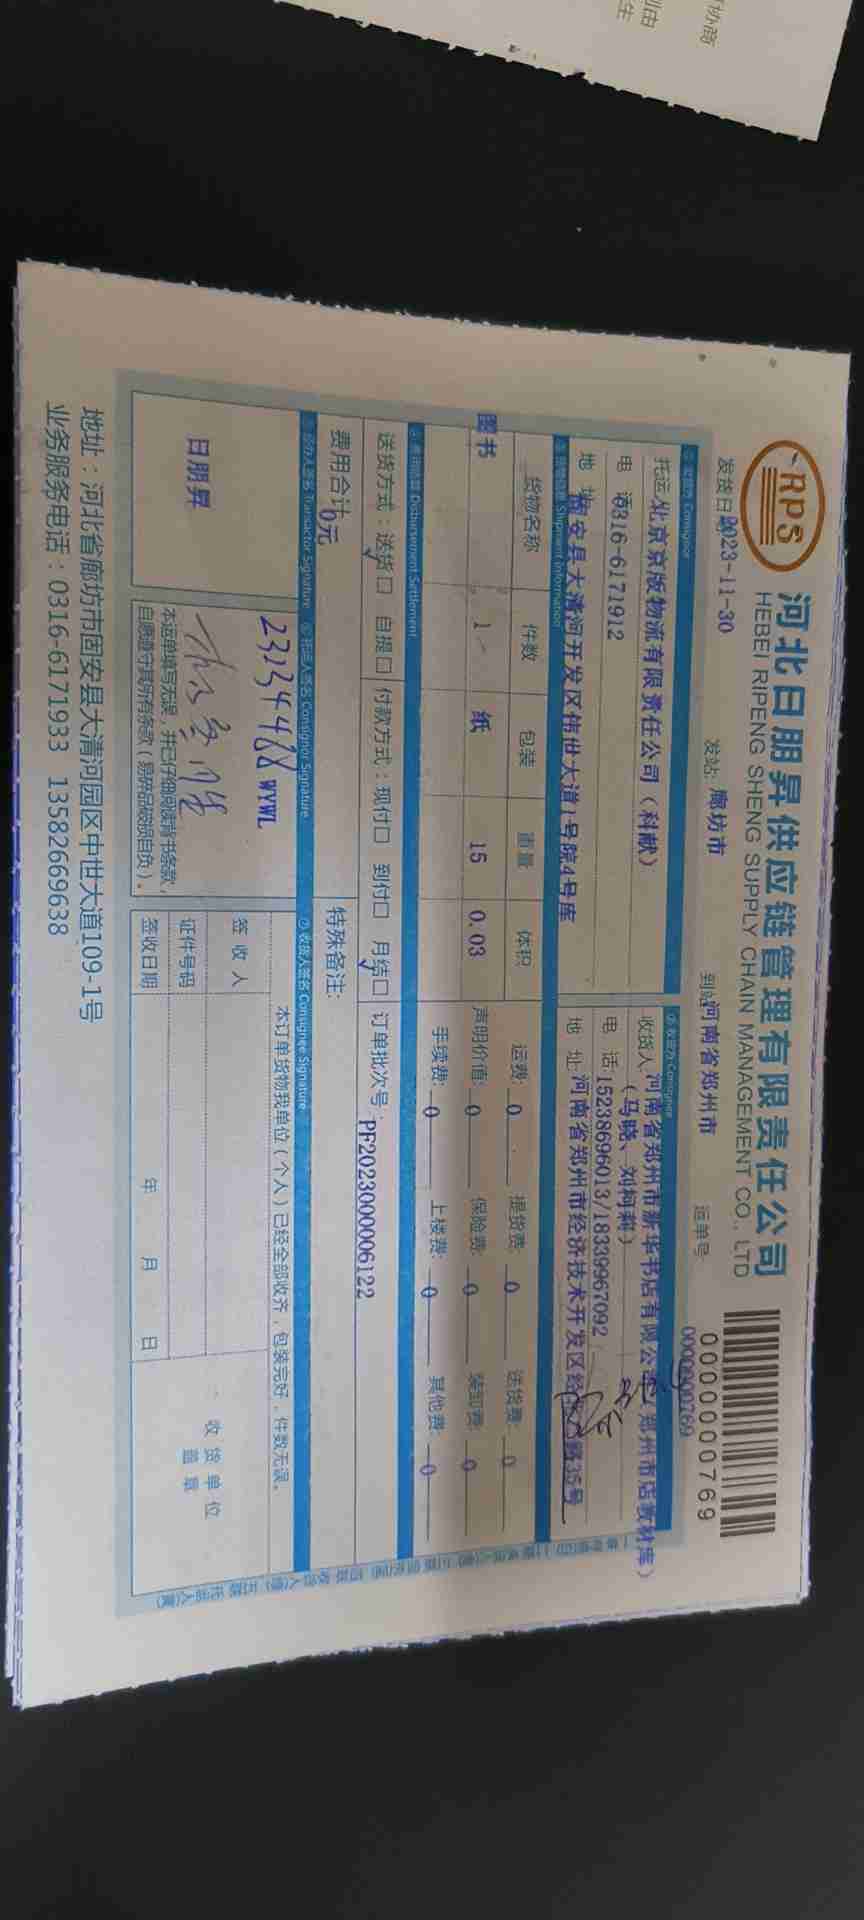 RPS
河北日朋昇供应链管理有限责任公司
HEBEI RIPENG SHENG SUPPLY CHAIN MANAGEMENT CO., LTD
0000000769
发货日期 2023-11-30 发站: 廊坊市 到站 河南省郑州市 运单号: 0000000769
①发货方 Consignor ②收货方 Consignee
托运 北京京版物流有限责任公司(科献) 收货人 河南省郑州市新华书店有限公司(郑州市店教材库)
(马晓、刘柯莉)
电 话 0316-6171912 电 话: 15238696013/18339967092
地 址 固安县大清河开发区伟世大道1号院4号库 地 址: 河南省郑州市经济技术开发区经 路35号
③货物信息 Shipment Information
货物名称 件数 包装 重量 体积 运费: 0 提货费: 0 送货费: 0
图书 1 纸 15 0.03 声明价值: 0 保险费: 0 装卸费: 0
手续费: 0 上楼费: 0 其他费: 0
④费用结算 Disbursement Settlement
送货方式: 送货☐ 自提☐ 付款方式: 现付☐ 到付☐ 月结☐ 订单批次号: PF2023000006122
费用合计 0元 特殊备注:
⑤经办人签名 Transactor Signature ⑥托运人签名 Consignor Signature ⑦收货人签名 Consignee Signature
日朋昇
23134488 WYWL
本运单填写无误,并已仔细阅读背书条款,
自愿遵守其所有条款(易碎品破损自负)。
本订单货物我单位(个人)已经全部收齐,包装完好,件数无误。
签 收 人
证件号码
签收日期 年 月 日
收货单位
盖章
地址:河北省廊坊市固安县大清河园区中世大道109-1号
业务服务电话:0316-6171933 13582669638